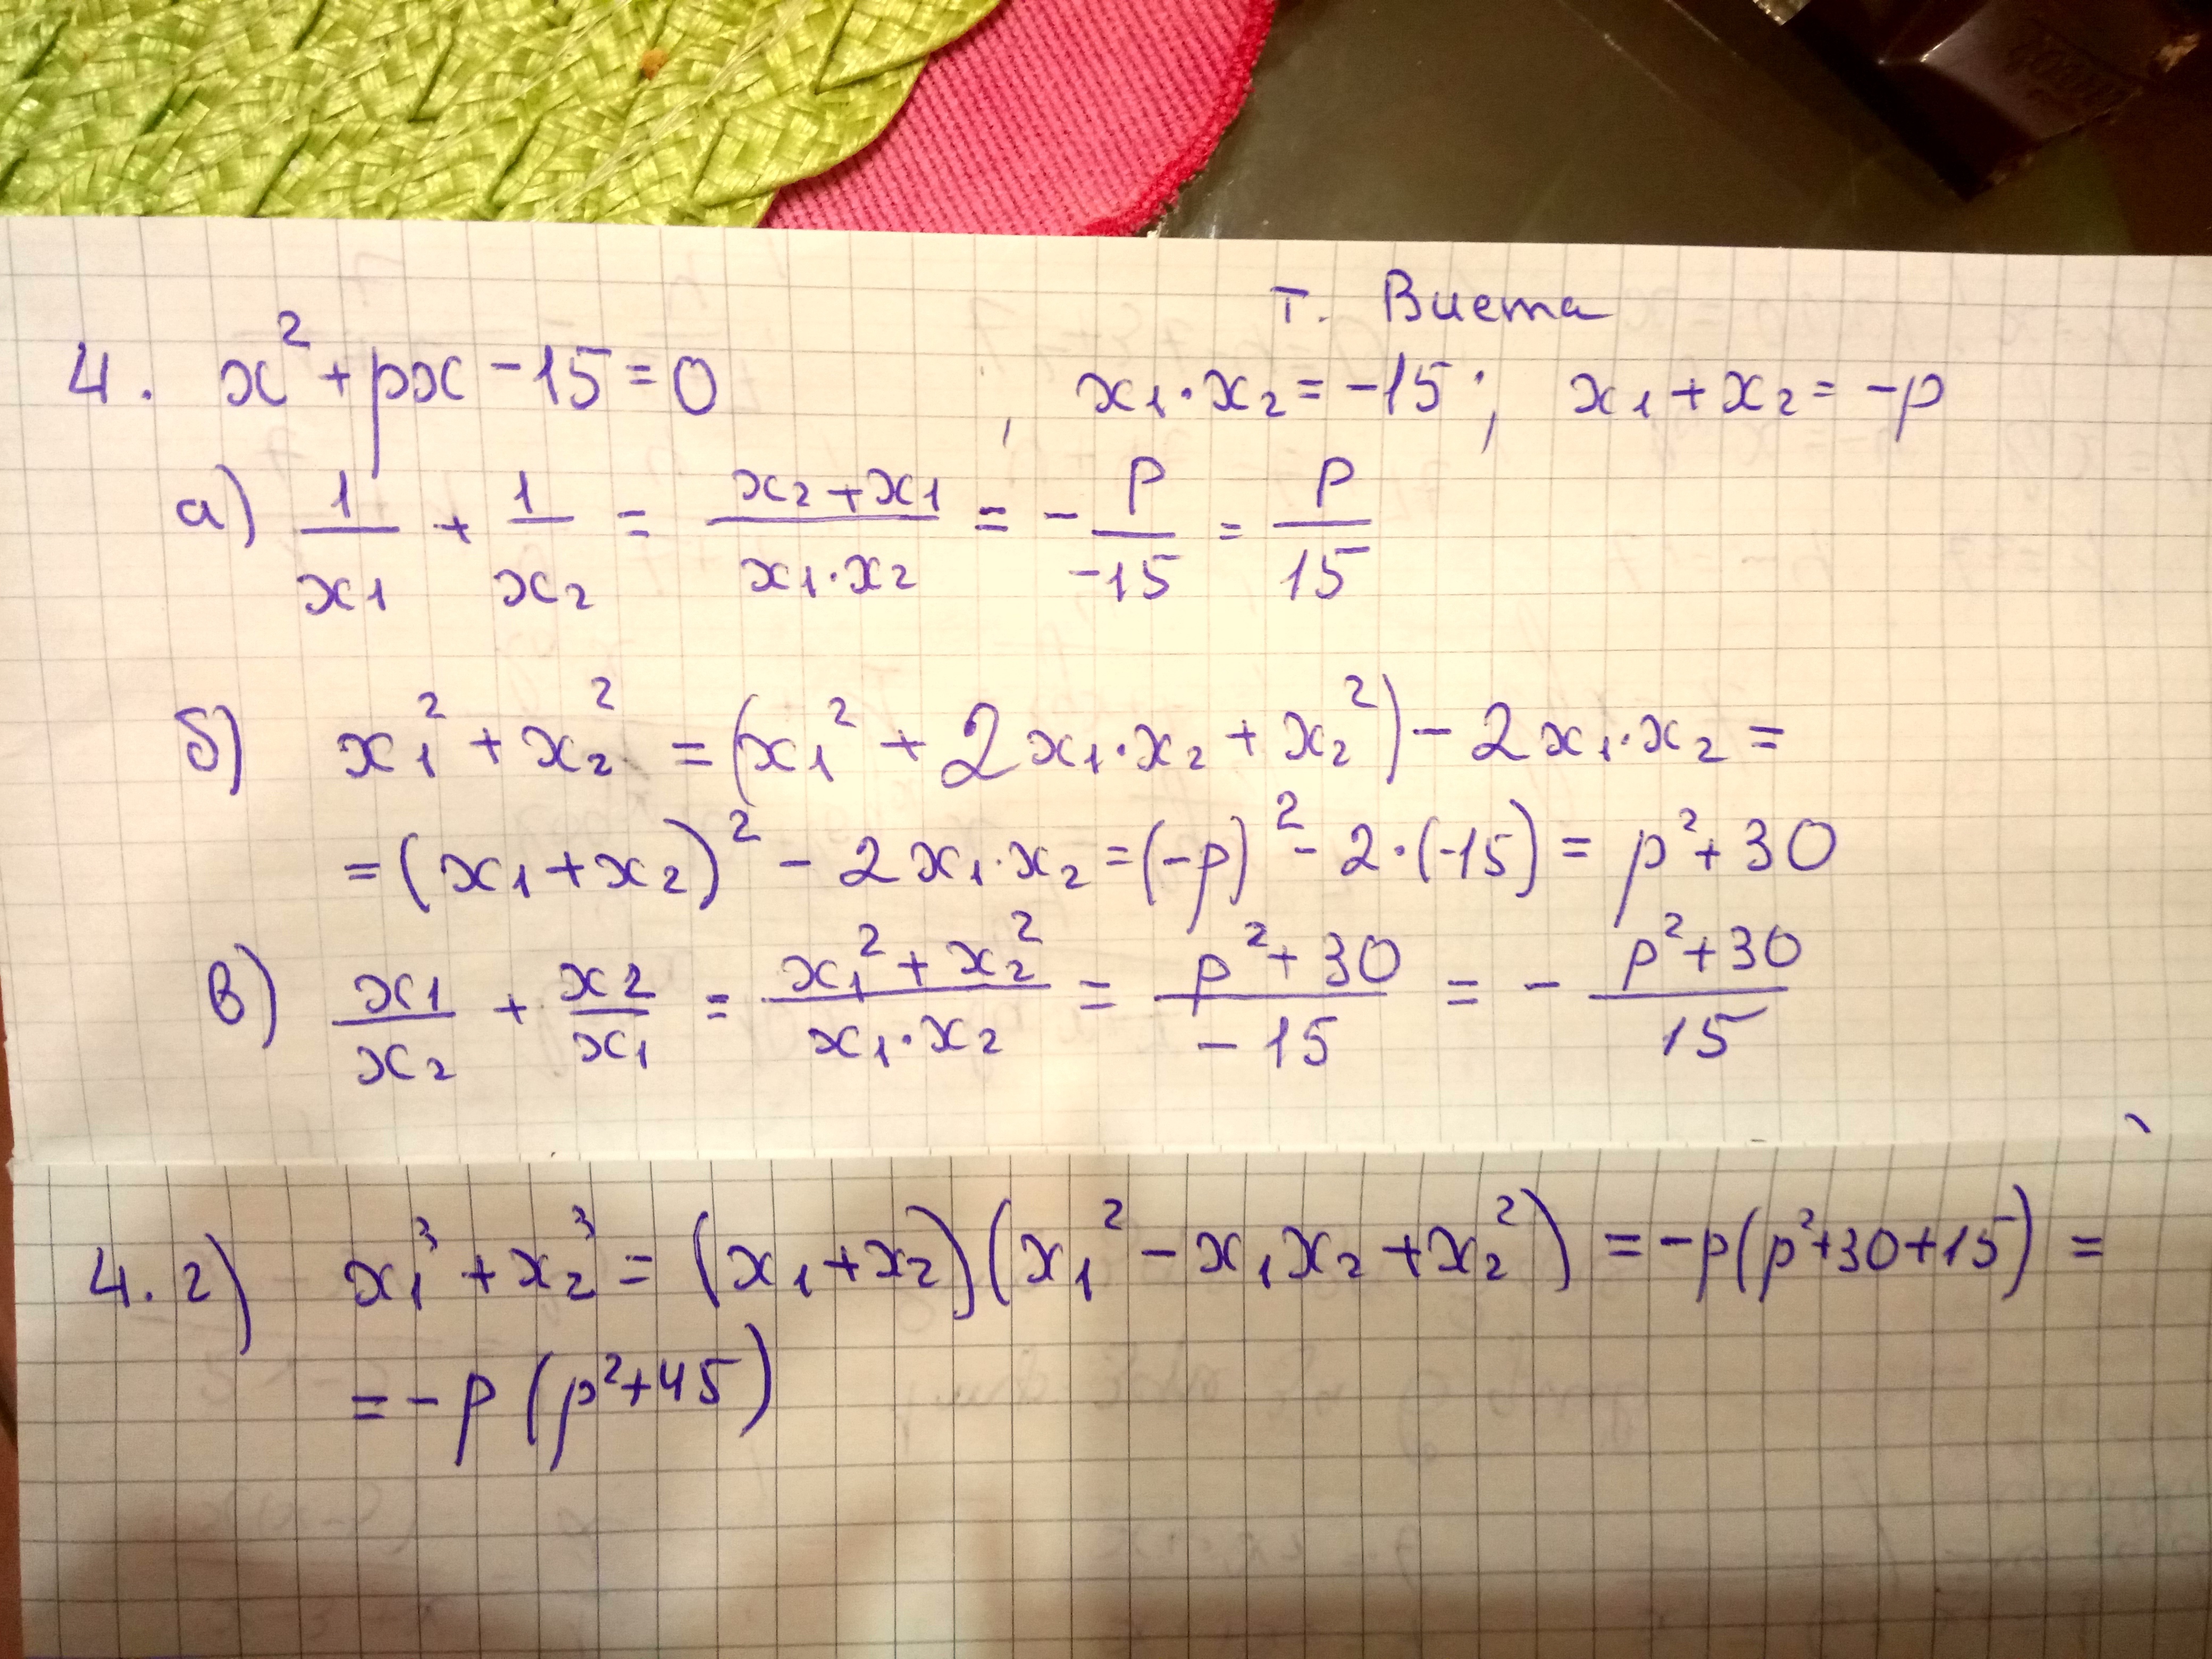 т. Виета
4. x² + px - 15 = 0 , x₁·x₂ = -15; x₁ + x₂ = -p
а) 1/x₁ + 1/x₂ = (x₂ + x₁)/(x₁·x₂) = - p/-15 = p/15
б) x₁² + x₂² = (x₁² + 2x₁·x₂ + x₂²) - 2x₁·x₂ =
= (x₁ + x₂)² - 2x₁·x₂ = (-p)² - 2·(-15) = p² + 30
в) x₁/x₂ + x₂/x₁ = (x₁² + x₂²)/(x₁·x₂) = (p² + 30)/-15 = - (p² + 30)/15
4. г) x₁³ + x₂³ = (x₁ + x₂)(x₁² - x₁x₂ + x₂²) = -p(p² + 30 + 15) =
= -p(p² + 45)